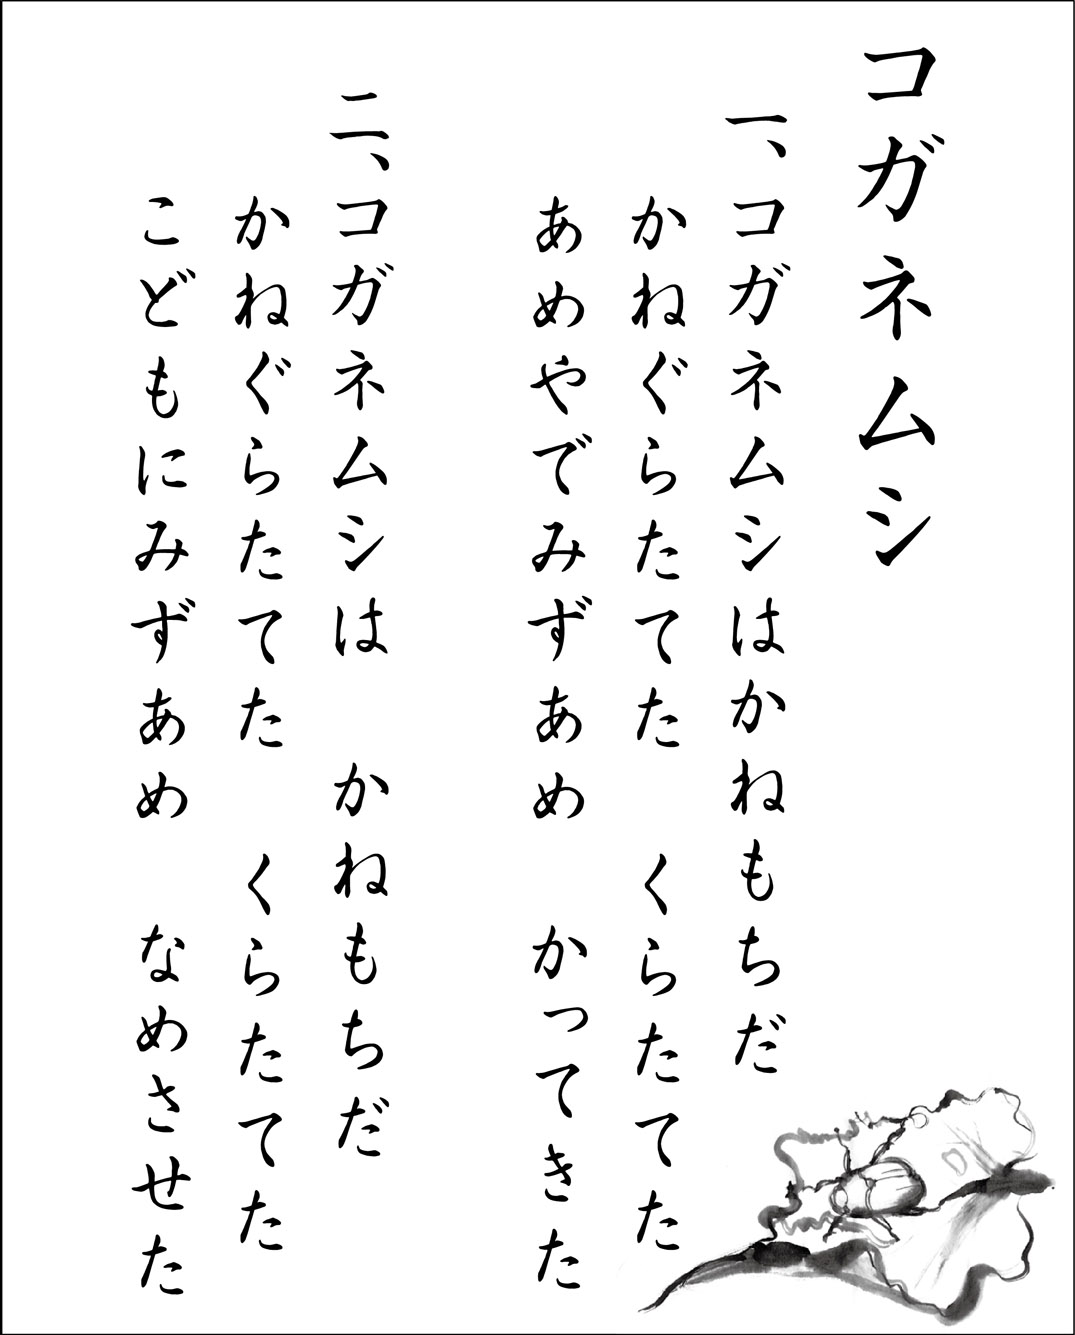 コガネムシ
一、コガネムシはかねもちだ
かねぐらたてた　くらたてた
あめやでみずあめ　かってきた
二、コガネムシは　かねもちだ
かねぐらたてた　くらたてた
こどもにみずあめ　なめさせた